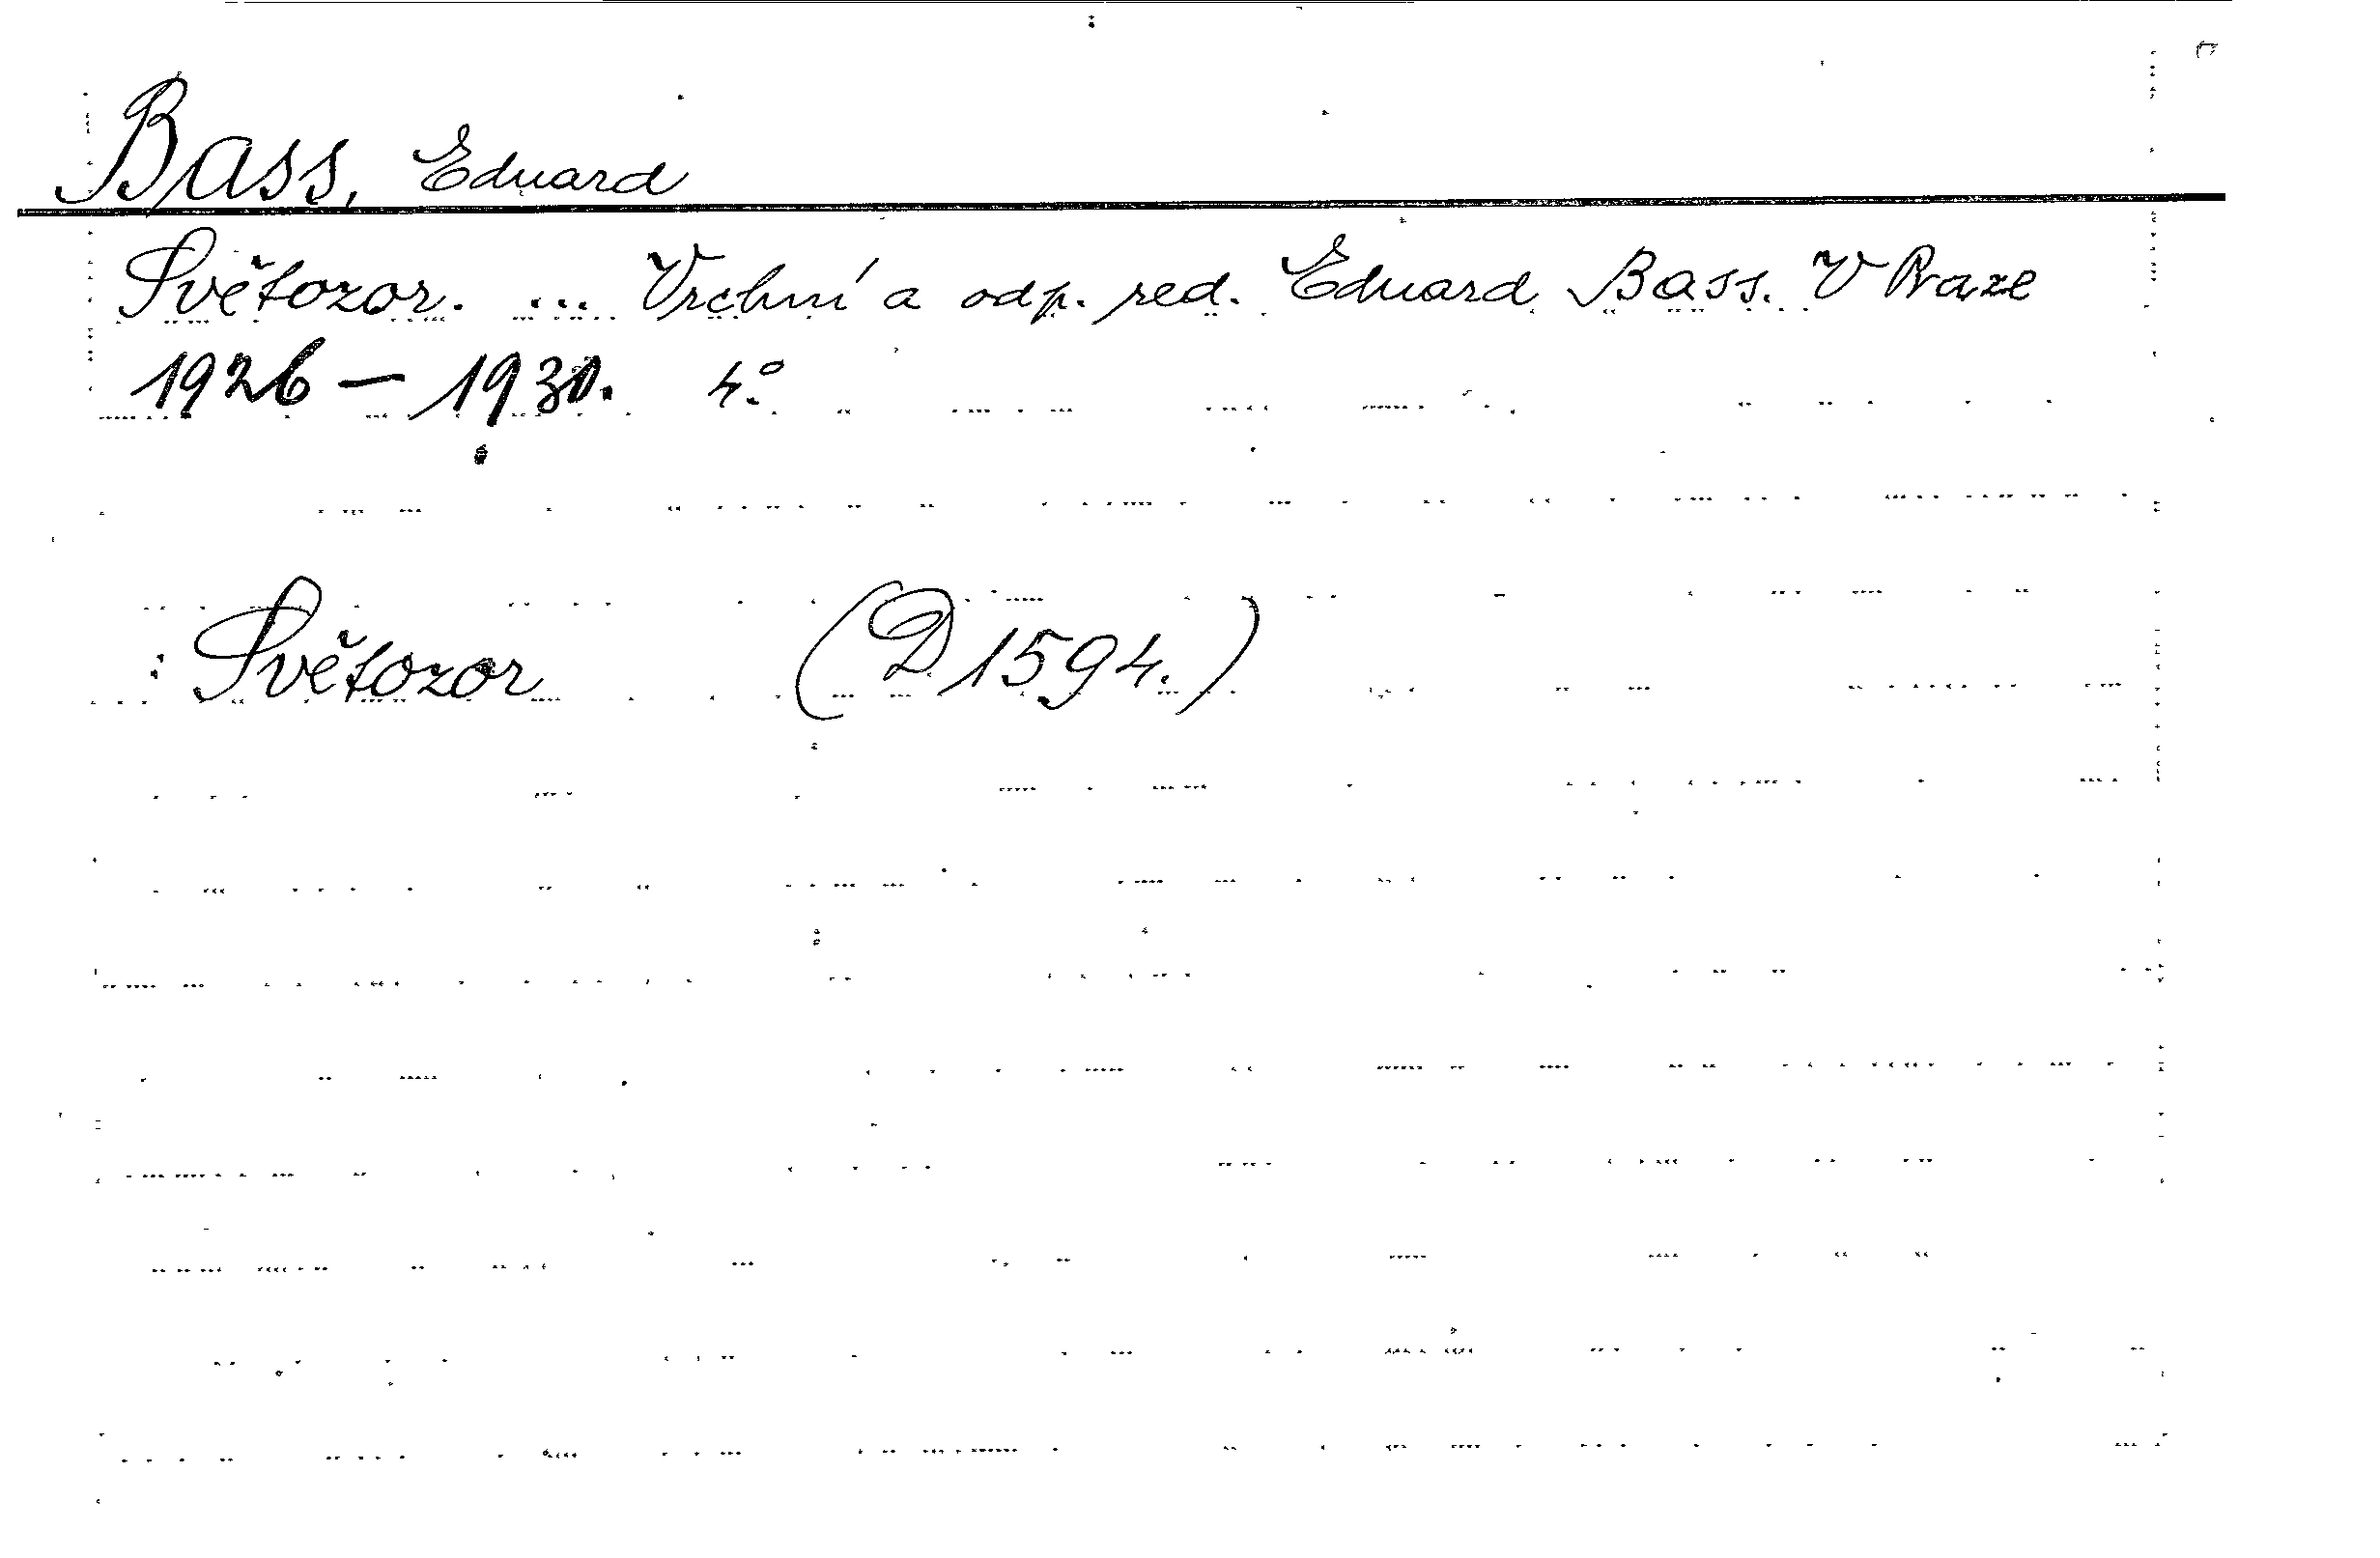 Bass, Eduard
Světozor. ... Vrchní a odp. red. Eduard Bass. V Praze
1926 — 1930. 4°.
Světozor (D 1594.)